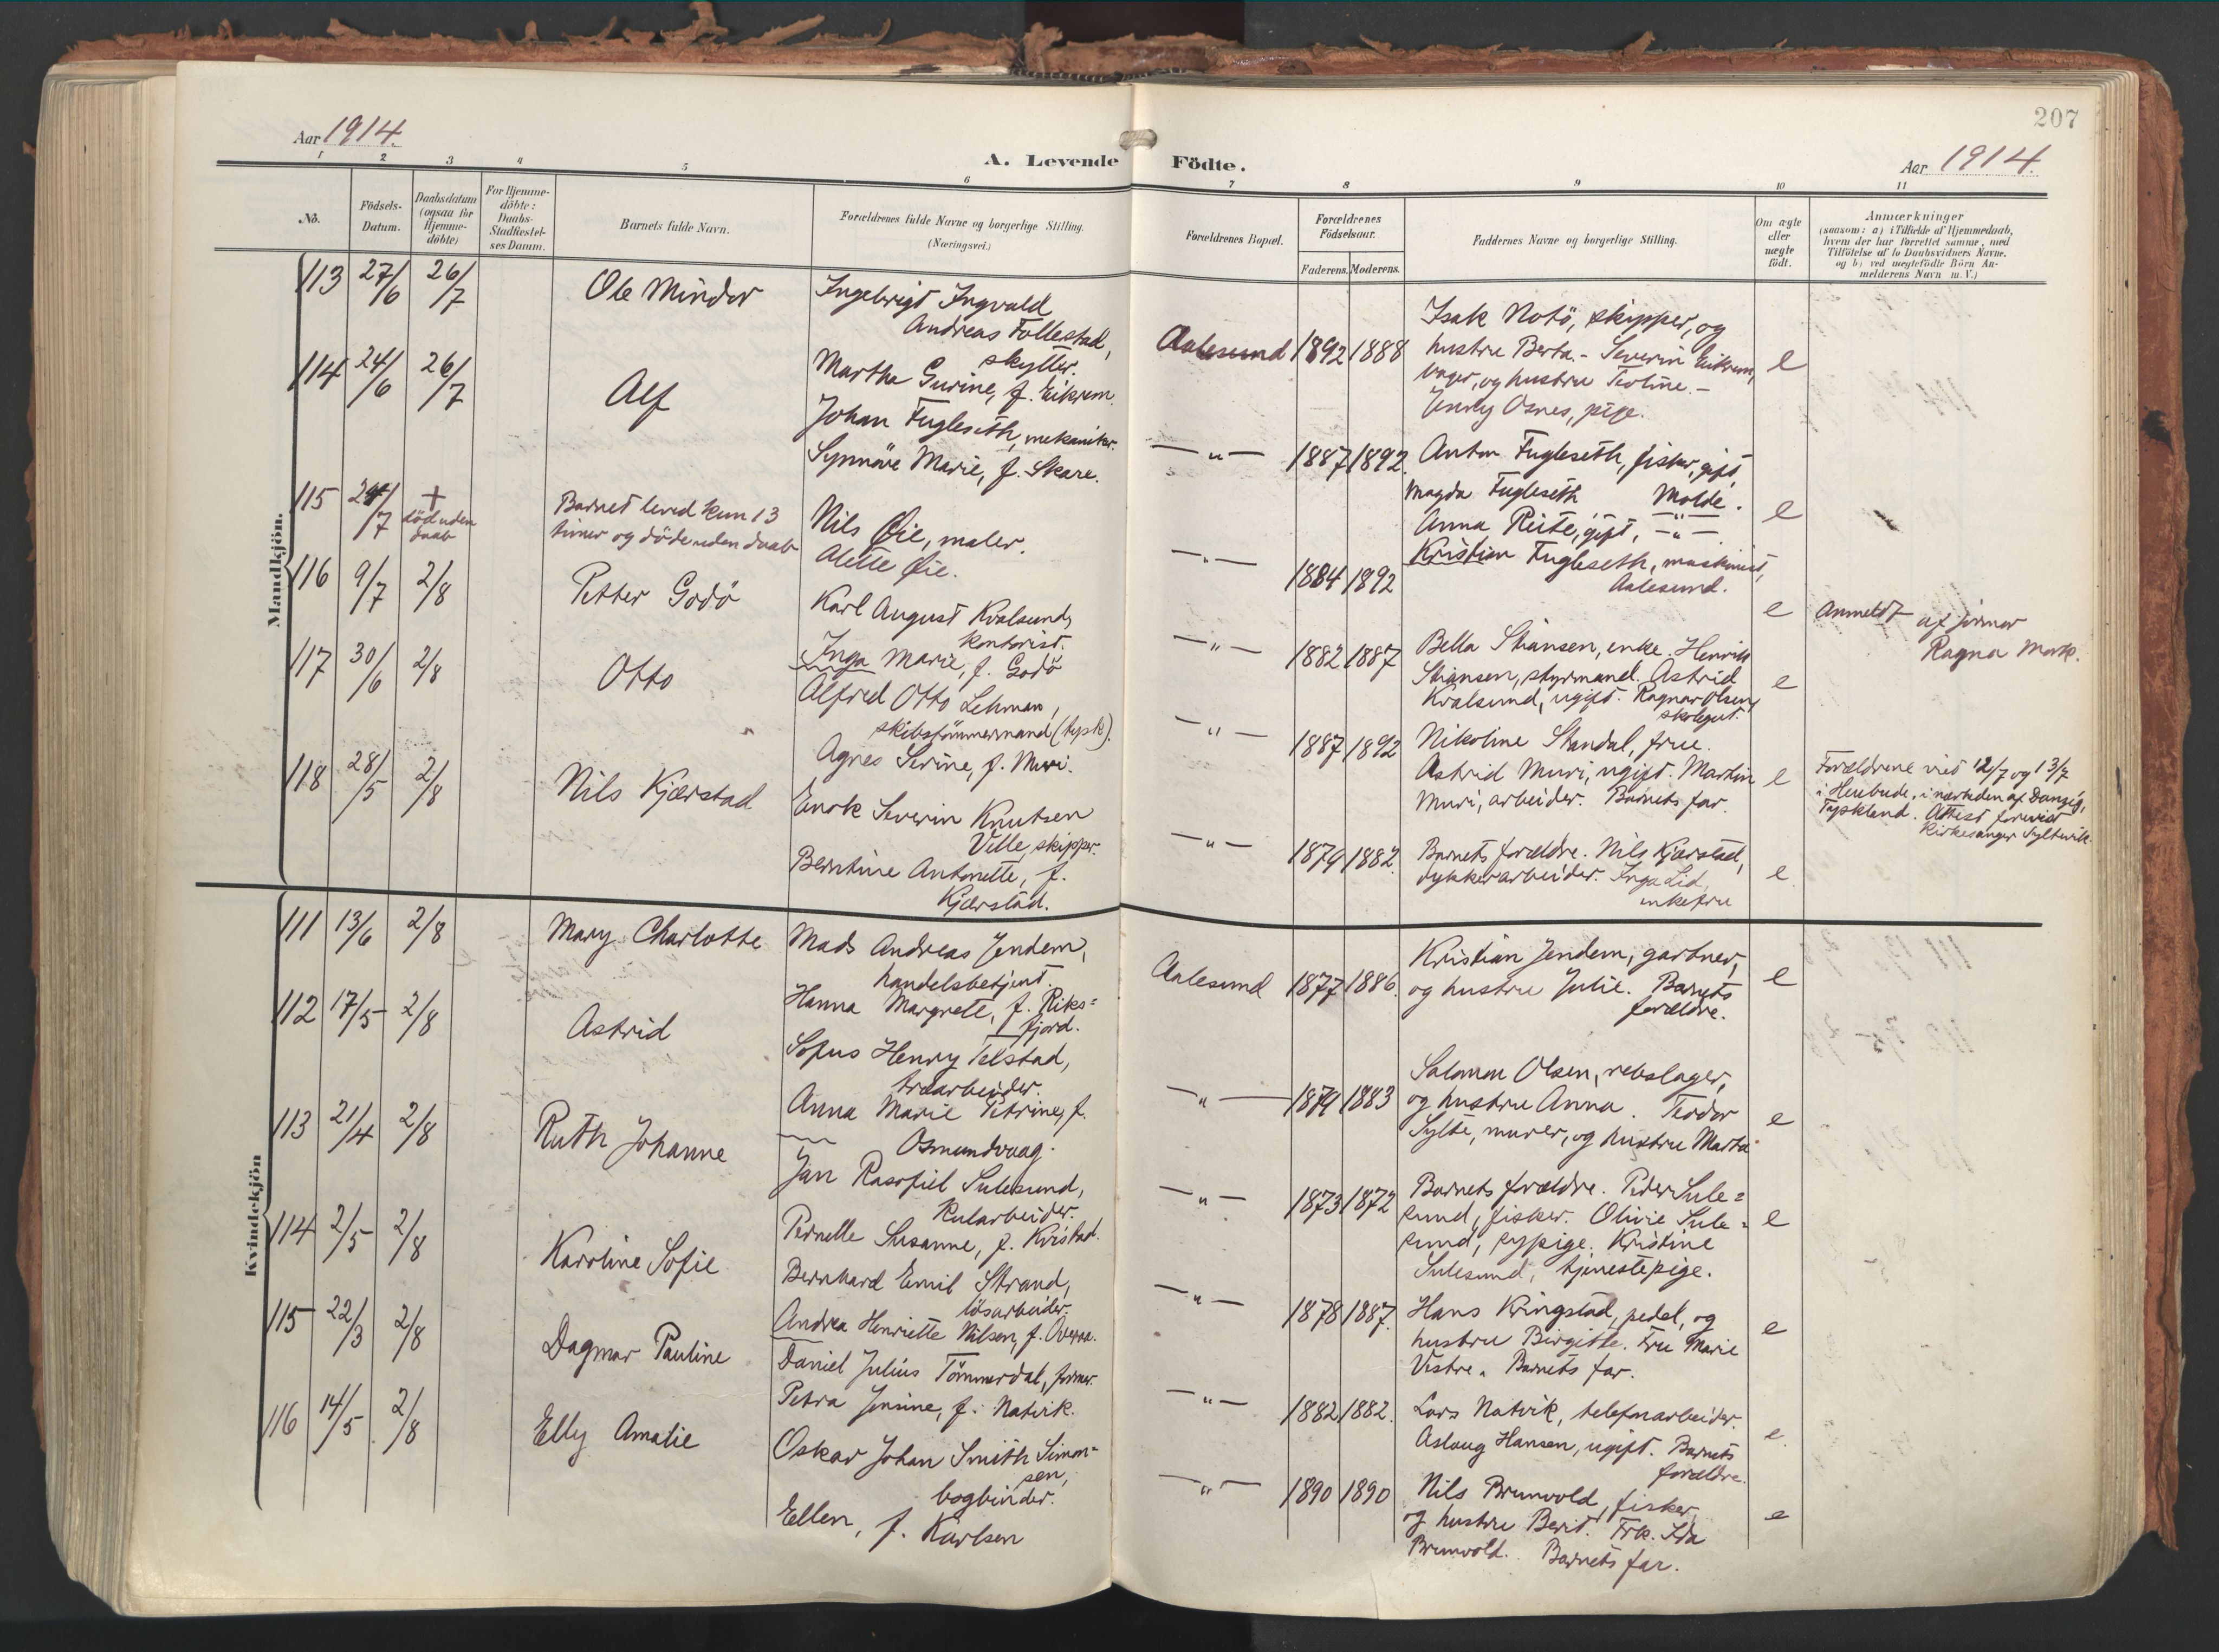 207
Aar 1914.
A. Levende Födte.
Aar 1914.
1 2 3 4 5 6 7 8 9 10 11
No.
Födsels-
Datum.
Daabsdatum
(ogsaa for
Hjemme-
döbte)
For Hjemme-
döbte:
Daabs-
Stadfæstel-
ses Datum.
Barnets fulde Navn.
Forældrenes fulde Navne og borgerlige Stilling.
(Næringsvei.)
Forældrenes Bopæl.
Forældrenes
Födselsaar.
Faderens. Moderens.
Faddernes Navne og borgerlige Stilling.
Om ægte
eller
uægte
födt.
Anmærkninger
(saasom: a) i Tilfælde af Hjemmedaab,
hvem der har forrettet samme, med
Tilföielse af to Daabsvidners Navne.
og b) ved uægtefödte Börn An-
melderens Navn m. V.)
Mandkjön.
113 27/6 26/7 Ole Mindor
Ingebrigt Ingvald
Andreas Follestad,
skytter.
Martha Gurine, f. Eikrem.
Aalesund 1892 1888
Isak Notö, skipper, og
hustru Berta. - Severin Eikrem,
bager, og hustru Teoline. -
Jenny Osnes, pige.
e
114 24/6 26/7 Alf
Johan Fugleseth, mekaniker.
Synnöve Marie, f. Skare.
—"— 1887 1892.
Anton Fugleseth, fisker, gift,
Magda Fugleseth Molde.
Anna Reite, gift, —"—
Kristian Fugleseth, maskinist,
Aalesund.
e
115 24/7 + död uden
daab
Barnet leved kun 13
timer og döde uden daab
Nils Øie, maler.
Alette Øie.
—"— 1884 1892
e
Anmeldt af jormor
Ragna Mork.
116 9/7 2/8 Petter Godö
Karl August Kvalsund,
kontorist.
Inga Marie, f. Godö
—"— 1882 1887
Bella Stiansen, enke. Henrik
Stiansen, styrmand. Astrid
Kvalsund, ugift. Ragnar Olsen,
skolegut.
e
117 30/6 2/8 Otto
Alfred Otto Lehman,
skibstömmermand (tysk).
Agnes Serine, f. Muri.
—"— 1887 1892
Nikoline Standal, frue.
Astrid Muri, ugift. Martin
Muri, arbeider. Barnets far.
e
Forældrene viet 12/7 og 13/7
i Heubude, i nærheden af Danzig,
Tyskland. Attest forevist
Kirkesanger
118 28/5 2/8 Nils Kjærstad
Enok Severin Knutsen
Velle, skipper.
Berntine Antonette, f.
Kjærstad.
—"— 1879 1882.
Barnets forældre. Nils Kjærstad,
dykkerarbeider. Inga Lid,
enkefru
e
Kvindekjön
111 13/6 2/8 Mary Charlotte
Mads Andreas Jendem,
handelsbetjent.
Hanna Margrete, f. Riks=
fjord.
Aalesund 1877 1886.
Kristian Jendem, gartner,
og hustru Julie. Barnets
forældre.
e
112 17/5 2/8 Astrid
Sofus Henry Telstad,
træarbeider.
Anna Marie Petrine, f.
Osmundvaag.
—"— 1879 1883
Salamon Olsen, rebslager,
og hustru Anna. Teodor
Sylte, murer, og hustru Marta.
e
113 21/4 2/8 Ruth Johanne
Jan Rasofiel Sulesund,
kularbeider.
Pernelle Susanne, f. Kvistad.
—"— 1873 1872
Barnets forældre. Peder Sule=
sund, fisker. Olivie Sule=
sund, sypige. Kristine
Sulesund, tjenestepige.
e
114 2/5 2/8 Karoline Sofie
Bernhard Emil Strand,
lösarbeider.
Andrea Henriette Nilsen, f. Overaa.
—"— 1878 1887.
Hans Kringstad, pedel, og
hustru Birgitte. Fru Marie
Vestre. Barnets far.
e
115 22/3 2/8 Dagmar Pauline
Daniel Julius Tömmerdal, former.
Petra Jensine, f. Natvik.
—"— 1882 1882.
Lars Natvik, telefonarbeider.
Aslaug Hansen, ugift. Barnets
forældre.
e.
116 14/5 2/8 Elly Amalie
Oskar Johan Smith Simon=
sen,
bogbinder.
Ellen, f. Karlsen
—"— 1890 1890
Nils Brunvold, fisker,
og hustru Berit. Frk. Ida
Brunvold. Barnets far.
e